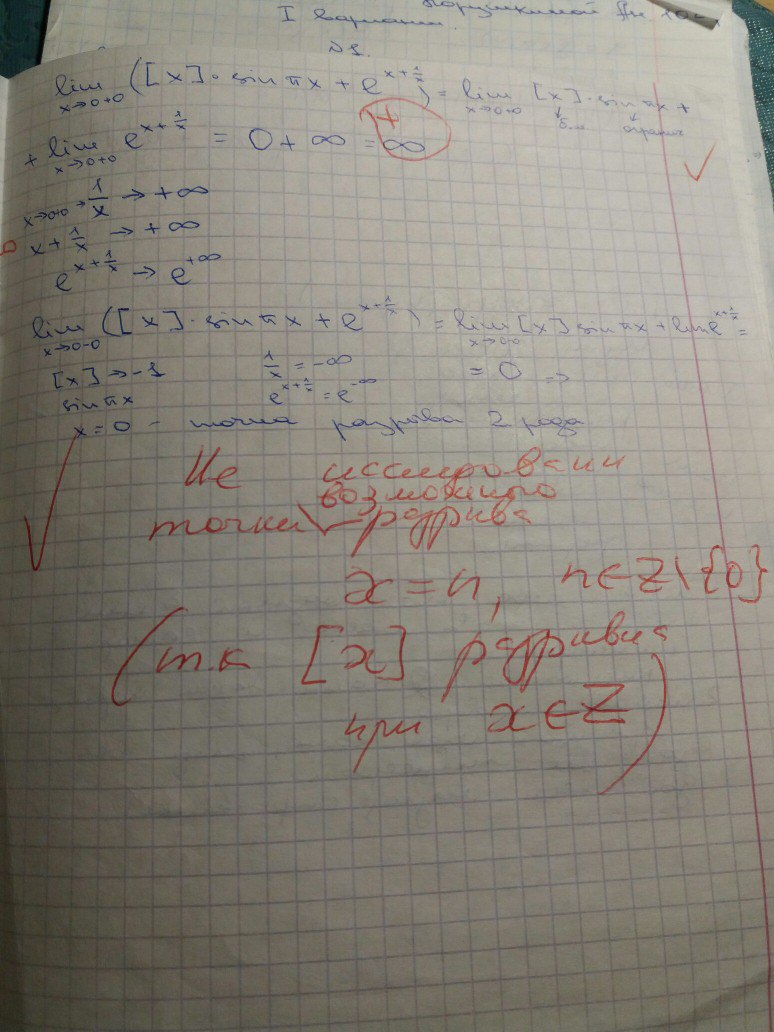 I вариант.
№1.
lim x→0+0 ([x]·sin πx + e^(x+1/x)) = lim x→0+0 [x]·sin πx +
б.м. огранич
+ lim x→0+0 e^(x+1/x) = 0 + ∞ = +∞
x→0+0 → 1/x → +∞
x + 1/x → +∞
e^(x+1/x) → e^(+∞)
lim x→0-0 ([x]·sin πx + e^(x+1/x)) = lim x→0-0 [x] sin πx + lim e^(x+1/x) =
[x] → -1 1/x = -∞ = 0 =>
sin πx e^(x+1/x) = e^(-∞)
x = 0 - точка разрыва 2 рода
Не исследованы
возможные
точки разрыва
x = n, n∈Z\{0}
(т.к [x] разрывна
при x∈Z)